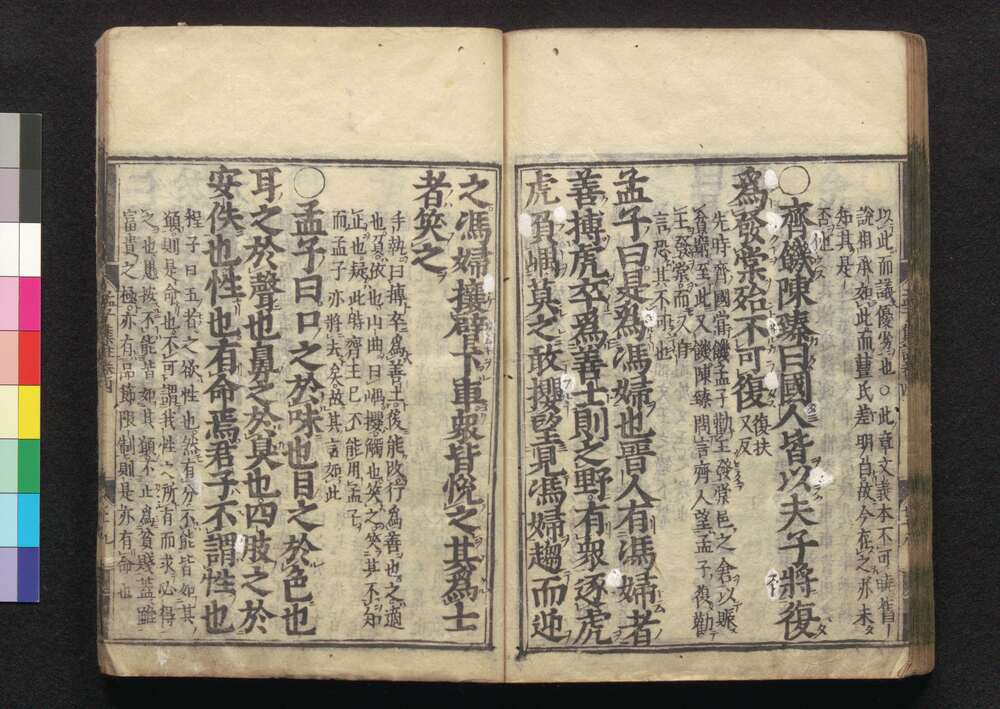 以此而議優劣也○此章文義本不可曉舊
說相承如此而豐氏差明白故今存之亦未
知其是
否也
○齊饑陳臻曰國人皆以夫子將復
爲發棠殆不可復復扶又反
先時齊國嘗饑孟子勸王發棠邑之倉以賑
貧窮至此又饑陳臻問言齊人望孟子復勸
王發棠而又自
言恐其不可也
孟子曰是爲馮婦也晉人有馮婦者
善搏虎卒爲善士則之野有衆逐虎
虎負嵎莫之敢攖望見馮婦趨而迎
之馮婦攘臂下車衆皆悅之其爲士
者笑之
手執曰搏卒爲善士後能改行爲善也之適
也負依也山曲曰嵎攖觸也笑之笑其不知
止也疑此時齊王已不能用孟子
而孟子亦將去矣故其言如此
○孟子曰口之於味也目之於色也
耳之於聲也鼻之於臭也四肢之於
安佚也性也有命焉君子不謂性也
程子曰五者之欲性也然有分不能皆如其
願則是命也不可謂我性之所有而求必得
之也愚按不能皆如其願不止爲貧賤蓋雖
富貴之極亦有品節限制則是亦有命也